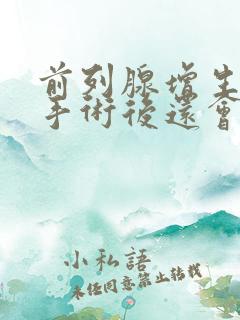 前列腺增生
手術後還會
小私語
未经同意禁止转载